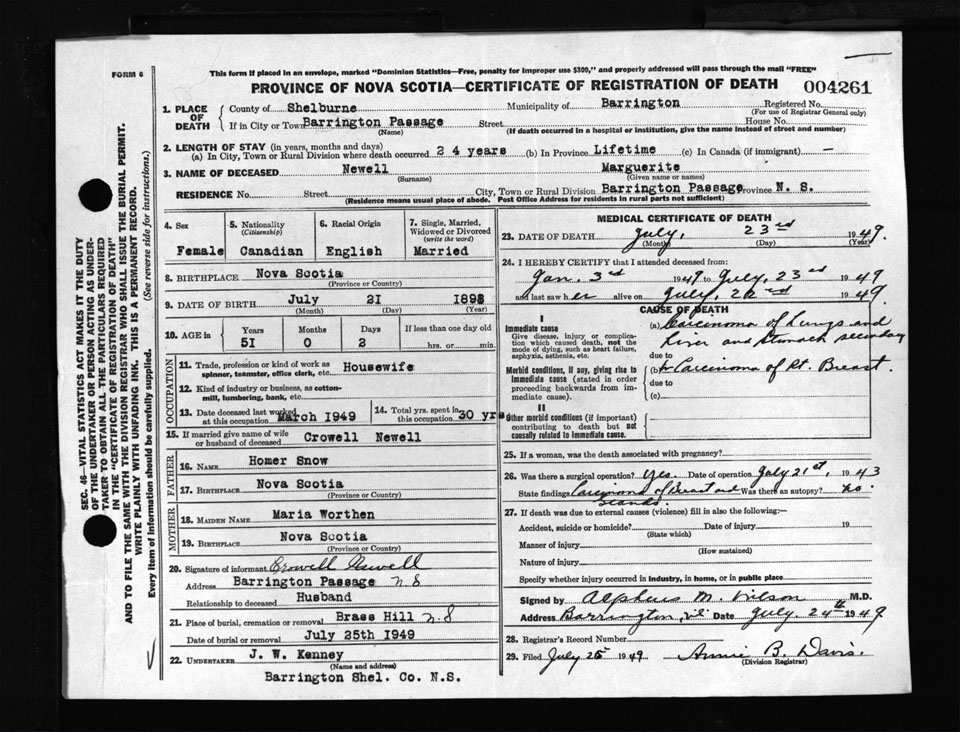 FORM 6
This form if placed in an envelope, marked "Dominion Statistics—Free, penalty for improper use $300," and properly addressed will pass through the mail "FREE"
PROVINCE OF NOVA SCOTIA—CERTIFICATE OF REGISTRATION OF DEATH 004261
1. PLACE OF DEATH
County of Shelburne Municipality of Barrington Registered No.
(For use of Registrar General only)
If in City or Town Barrington Passage Street House No.
(Name) (If death occurred in a hospital or institution, give the name instead of street and number)
2. LENGTH OF STAY (in years, months and days)
(a) In City, Town or Rural Division where death occurred 2 4 years (b) In Province Lifetime (c) In Canada (if immigrant) —
3. NAME OF DECEASED Newell Marguerite
(Surname) (Given name or names)
RESIDENCE No. Street City, Town or Rural Division Barrington Passage Province N. S.
(Residence means usual place of abode. Post Office Address for residents in rural parts not sufficient)
4. Sex 5. Nationality (Citizenship) 6. Racial Origin 7. Single, Married, Widowed or Divorced (write the word)
Female Canadian English Married
8. BIRTHPLACE Nova Scotia
(Province or Country)
9. DATE OF BIRTH July 21 1898
(Month) (Day) (Year)
10. AGE in Years Months Days If less than one day old
51 0 2 hrs. or min.
OCCUPATION
11. Trade, profession or kind of work as spinner, teamster, office clerk, etc. Housewife
12. Kind of industry or business, as cotton-mill, lumbering, bank, etc.
13. Date deceased last worked at this occupation March 1949 14. Total yrs. spent in this occupation 30 yrs
15. If married give name of wife or husband of deceased Crowell Newell
FATHER
16. NAME Homer Snow
17. BIRTHPLACE Nova Scotia
MOTHER
18. MAIDEN NAME Maria Worthen
19. BIRTHPLACE Nova Scotia
(Province or Country)
20. Signature of informant Crowell Newell
Address Barrington Passage N S
Relationship to deceased Husband
21. Place of burial, cremation or removal Brass Hill N S
Date of burial or removal July 25th 1949
22. UNDERTAKER J. W. Kenney
(Name and address)
Barrington Shel. Co. N.S.
MEDICAL CERTIFICATE OF DEATH
23. DATE OF DEATH July, 23rd 1949.
(Month) (Day) (Year)
24. I HEREBY CERTIFY that I attended deceased from:
Jan. 3rd 1949 to July, 23rd 1949
and last saw her alive on July, 22nd 1949.
CAUSE OF DEATH
I
Immediate cause
Give disease, injury or complication which caused death, not the mode of dying, such as heart failure, asphyxia, asthenia, etc.
(a) Carcinoma of Lungs and
Liver and Stomach secondary
due to
Morbid conditions, if any, giving rise to immediate cause (stated in order proceeding backwards from immediate cause).
(b) to Carcinoma of Rt. Breast.
due to
(c)
II
Other morbid conditions (if important) contributing to death but not causally related to immediate cause.
25. If a woman, was the death associated with pregnancy?
26. Was there a surgical operation? Yes. Date of operation July 21st, 1943
State findings Carcinoma of Breast and Glands Was there an autopsy? No.
27. If death was due to external causes (violence) fill in also the following:—
Accident, suicide or homicide? Date of injury 19
(State which)
Manner of injury
(How sustained)
Nature of injury
Specify whether injury occurred in industry, in home, or in public place
Signed by Alpheus M. Wilson M.D.
Address Barrington, N.S. Date July 24th 1949
28. Registrar's Record Number
29. Filed July 25 1949 Annie B. Davis.
(Division Registrar)
SEC. 46—VITAL STATISTICS ACT MAKES IT THE DUTY
OF THE UNDERTAKER OR PERSON ACTING AS UNDER-
TAKER TO OBTAIN ALL THE PARTICULARS REQUIRED
IN THE "CERTIFICATE OF REGISTRATION OF DEATH"
AND TO FILE THE SAME WITH THE DIVISION REGISTRAR WHO SHALL ISSUE THE BURIAL PERMIT.
WRITE PLAINLY WITH UNFADING INK. THIS IS A PERMANENT RECORD.
Every item of information should be carefully supplied. (See reverse side for instructions.)